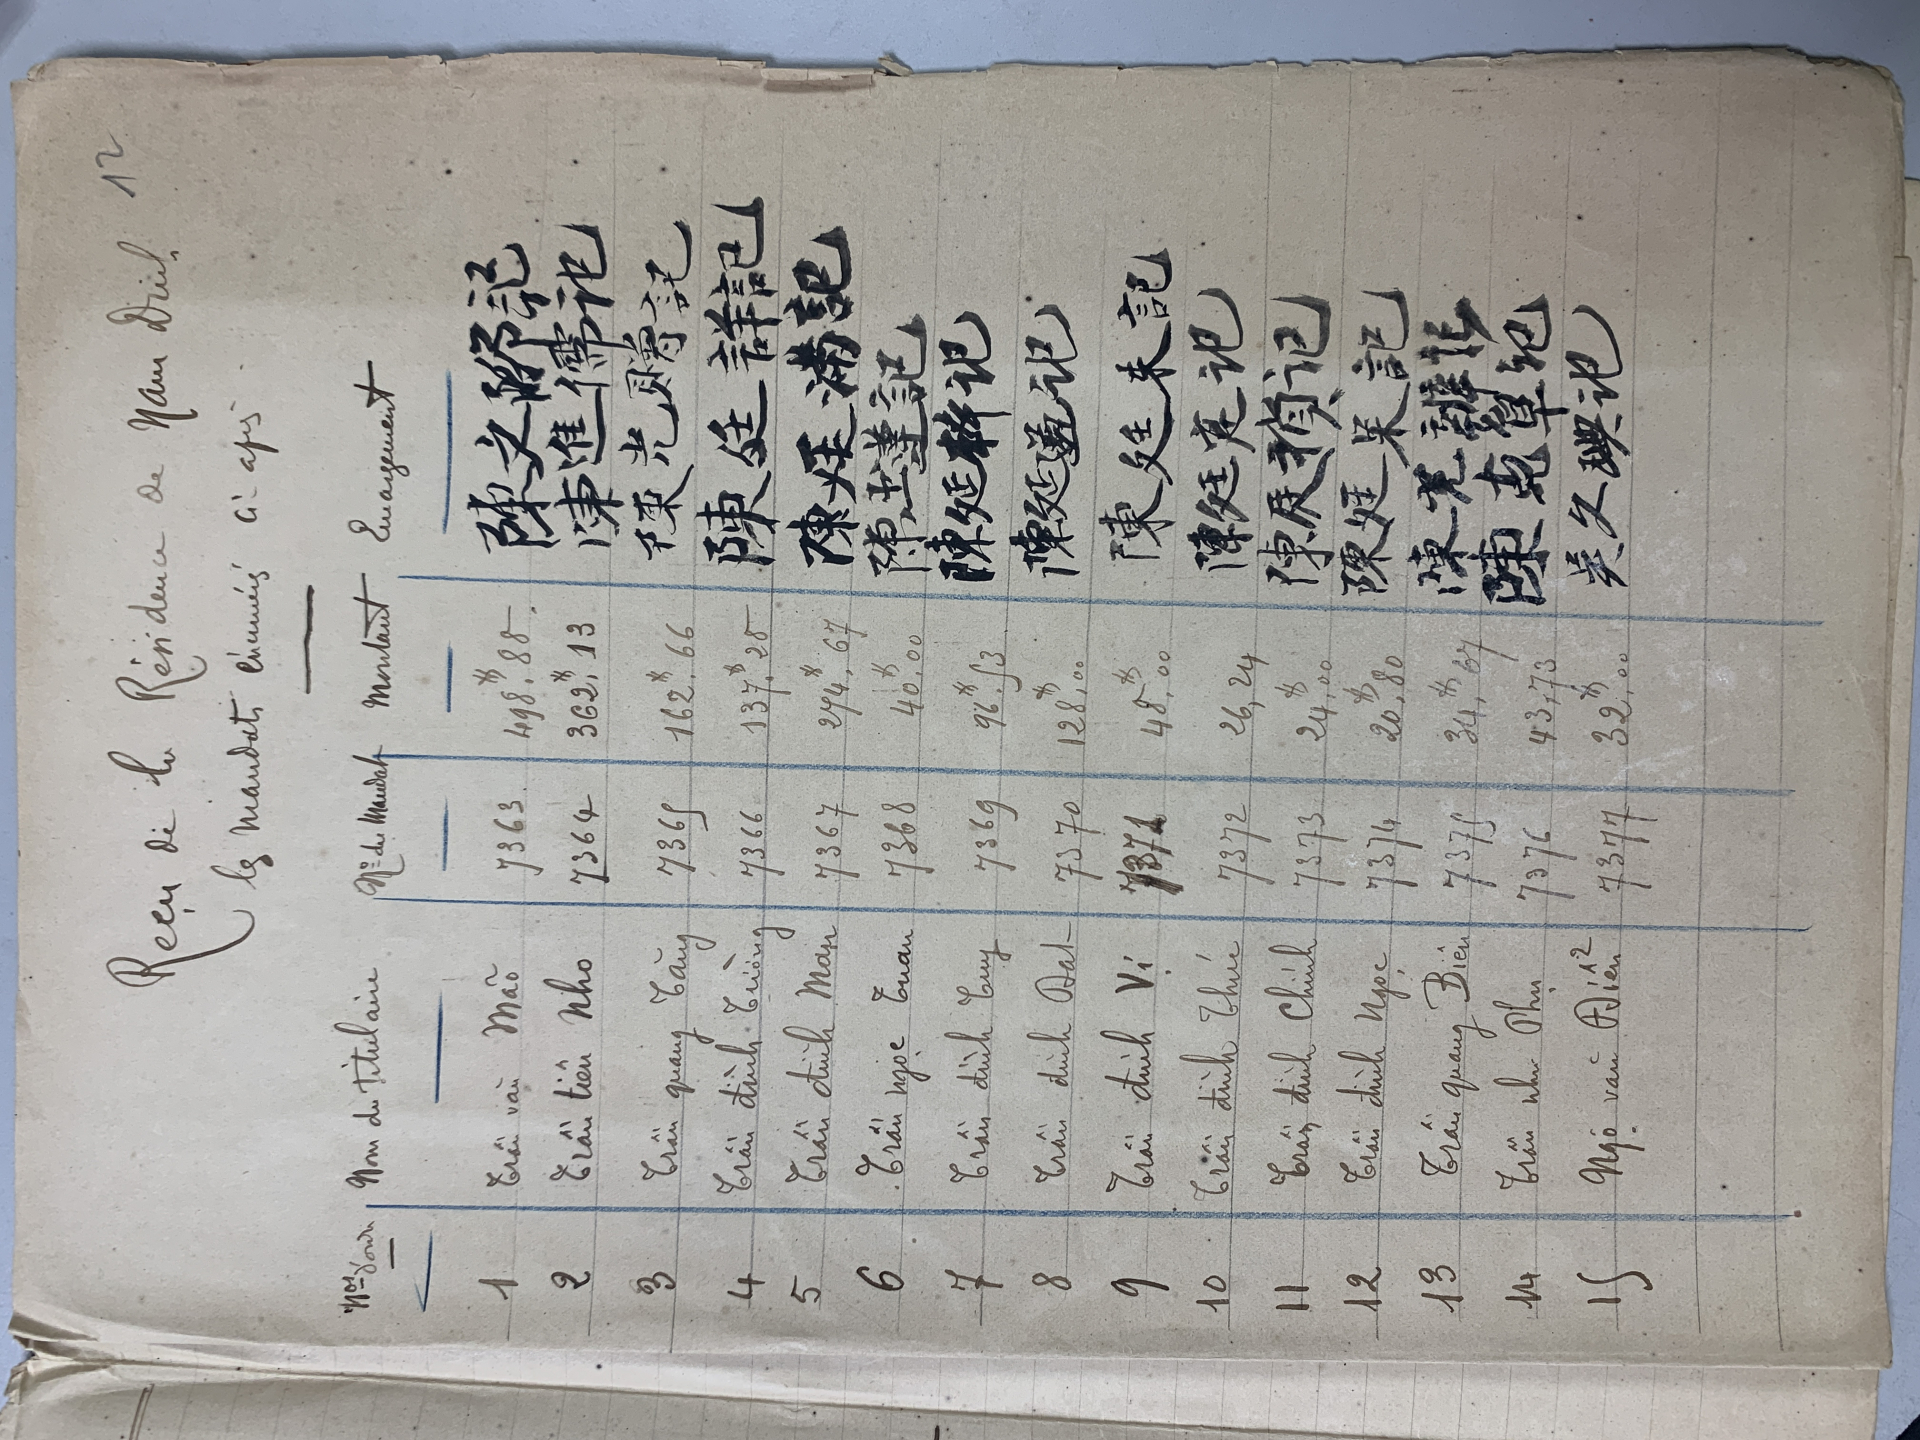 12
Reçu de la Résidence de Nam Dinh
les mandats énumérés ci-après
Nos d'ordre Nom du titulaire Nos des Mandats Montant Emargement
1 Trần văn Mão 7363 498$.88 陳文卯記
2 Trần tiến Nho 7364 362$.13 陳進儒記
3 Trần quang Tăng 7365 162$.66 陳光贈記
4 Trần đình Tường 7366 137$.28 陳廷詳記
5 Trần đình Mãn 7367 274$.67 陳廷满記
6 Trần ngọc Tuân 7368 40$.00 陳玉遵記
7 Trần đình 7369 96$.53 陳廷 記
8 Trần đình Đạt 7370 128$.00 陳廷 記
9 Trần đình Vị 7371 48$.00 陳廷未記
10 Trần đình Thúc 7372 26,24 陳廷 記
11 Trần đình Chinh 7373 24$.00 陳廷 記
12 Trần đình Ngọc 7374 20$.80 陳廷 記
13 Trần quang Biên 7375 34$.67 陳光 記
14 Trần như 7376 43,73 陳 記
15 Ngô văn 7377 32$.00 吳文 記